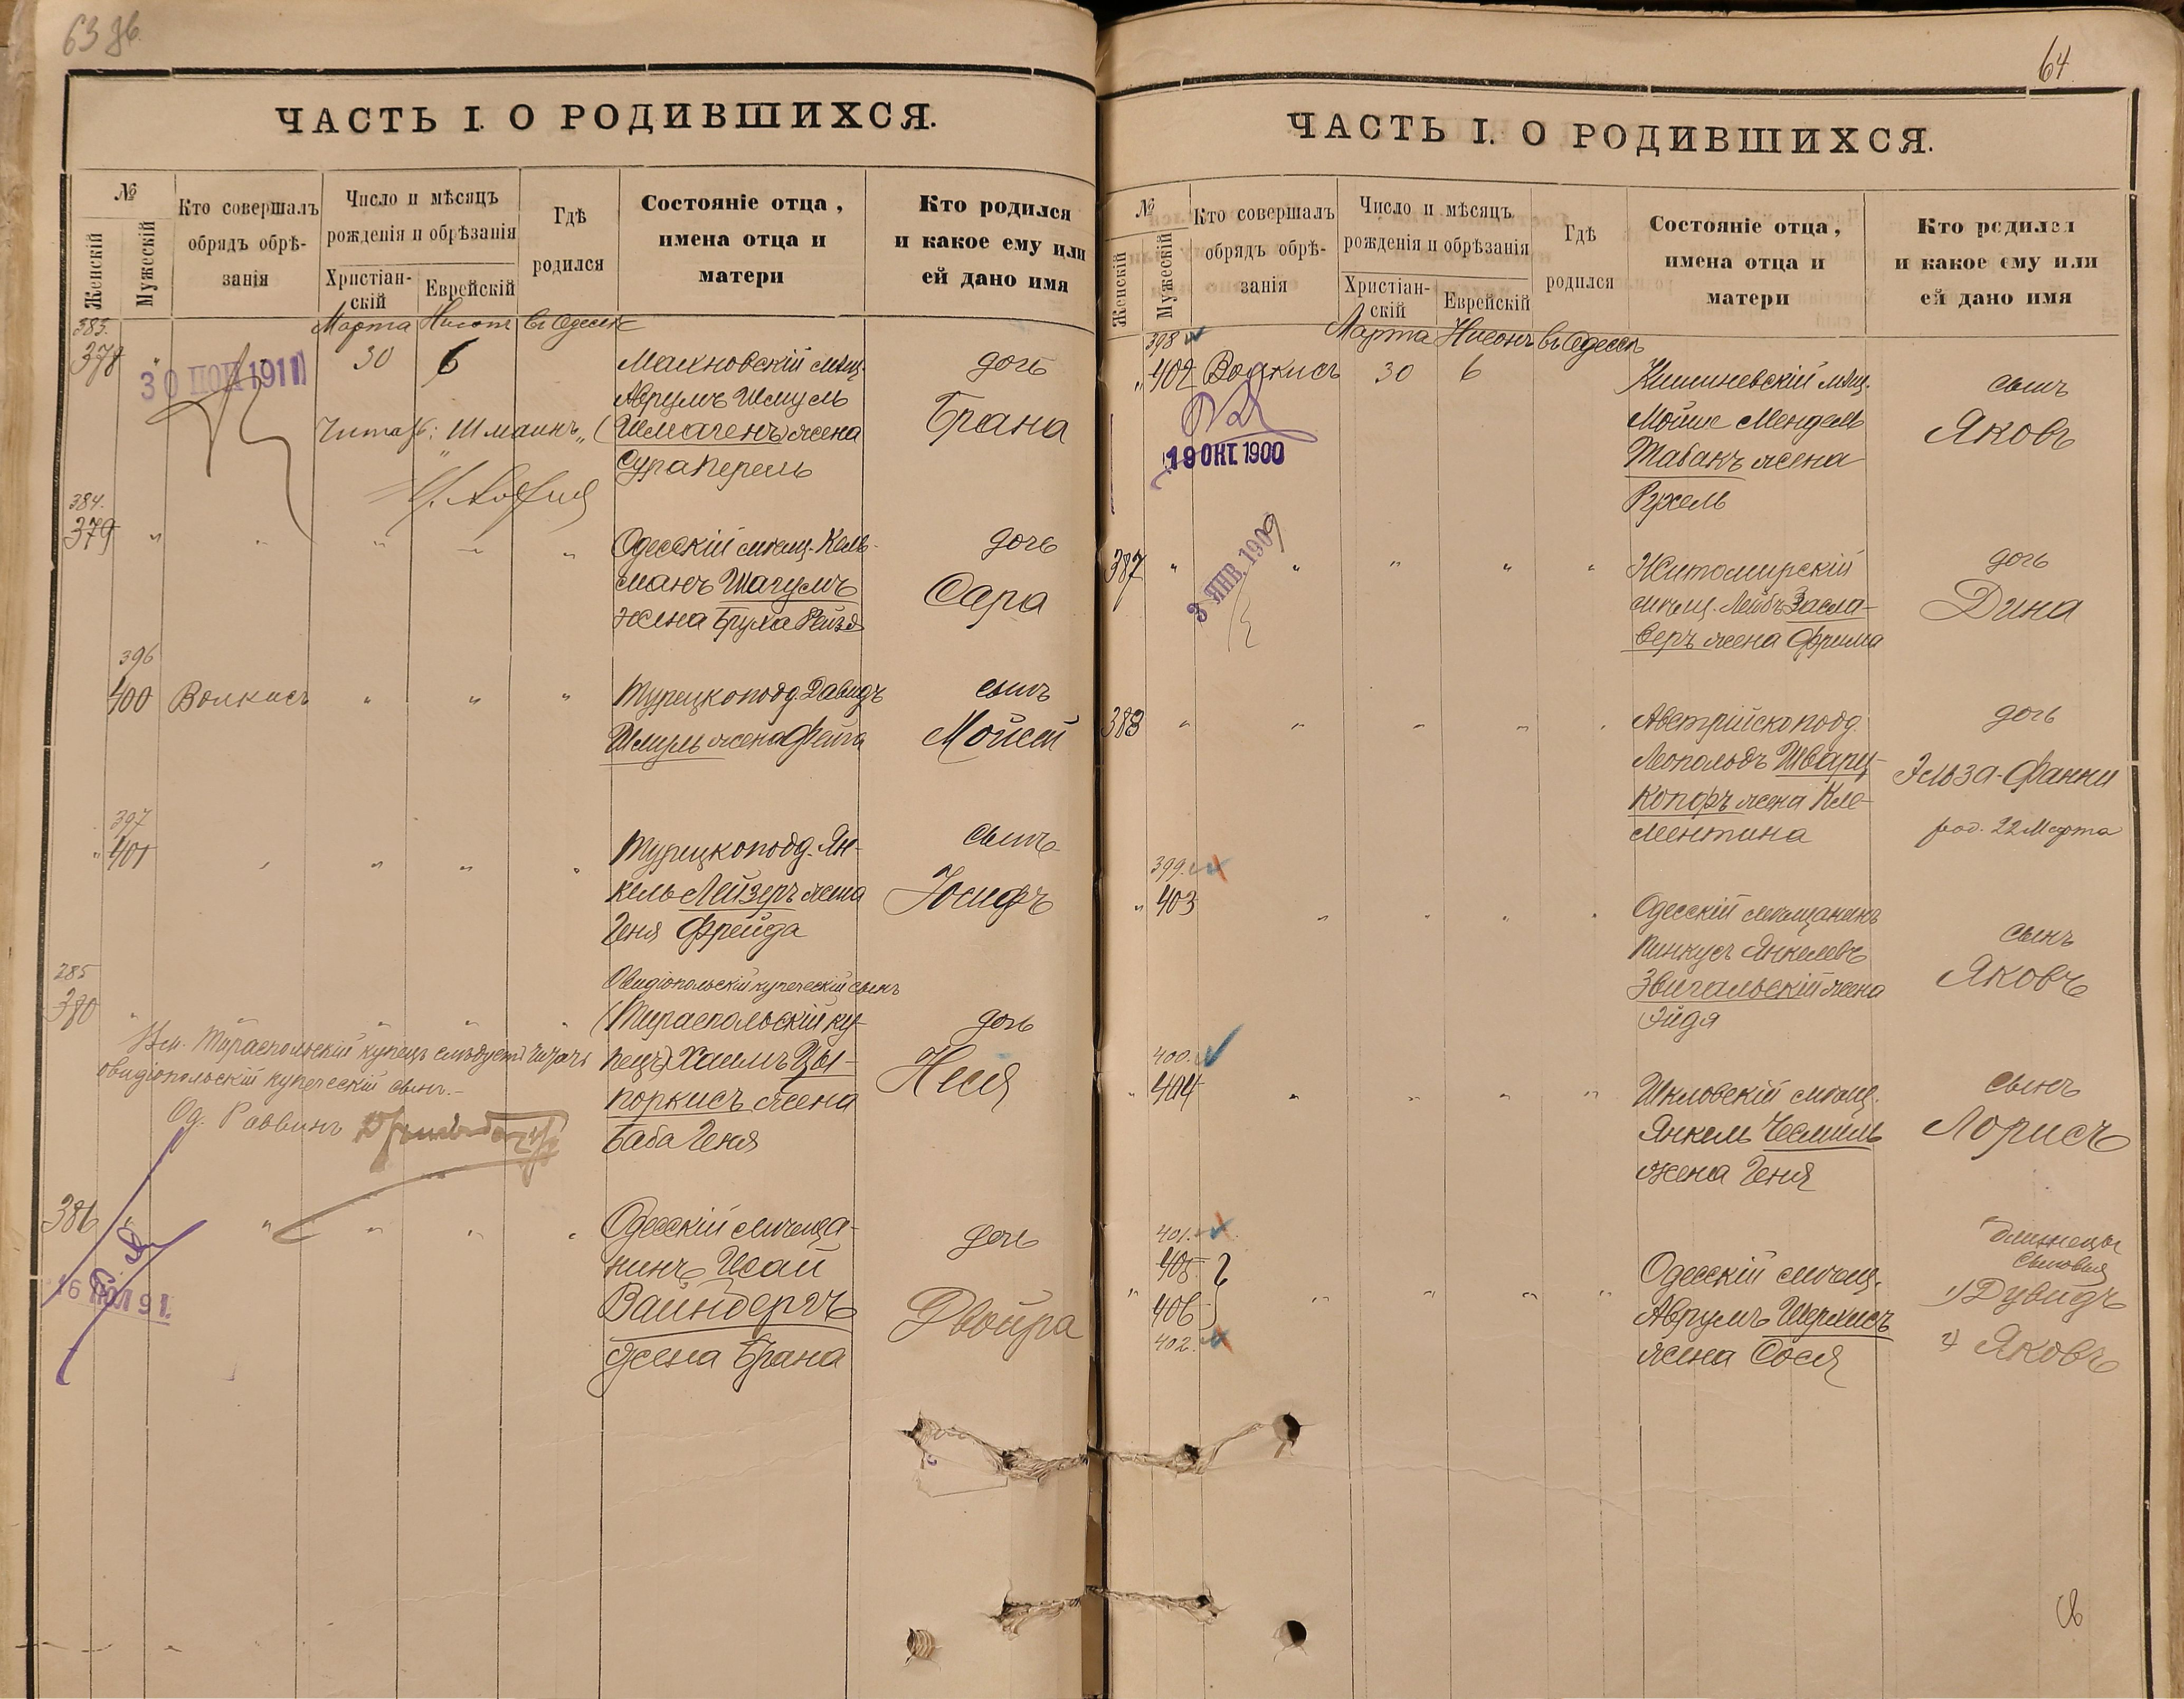 63 об.
ЧАСТЬ I. О РОДИВШИХСЯ.
№
Женскій
Мужескій
Кто совершалъ
обрядъ обрѣ-
занія
Число и мѣсяцъ
рожденія и обрѣзанія
Христіан-
скій
Еврейскій
Гдѣ
родился
Состояніе отца,
имена отца и
матери
Кто родился
и какое ему или
ей дано имя
Марта Нисонъ въ Одессѣ
383.
378 " 30 6 Махновскій мѣщ. дочь
30 НОЯ 1911
Аврумъ Шмуль
Читать: "Шмаинъ" (Шмагенъ) жена Брана
Сура Перель
384.
379 " " " " " Одесскій мѣщ. Кель-
манъ Шагумъ
жена Бруха Рейзя
дочь
Сара
396
400 Волкисъ " " " Турецкоподд. Давидъ
Шмуль жена Фейга
сынъ
Мойсей
397
" 401 " " " " Турецкоподд. Ян-
кель Лейзеръ жена
Геня Фрейда
сынъ
Іосифъ
285
380 " " " " "
Овидіопольскій купеческій сынъ
(Тираспольскій ку-
пецъ) Хаимъ Цы-
поркисъ жена
Баба Геня
дочь
Неся
Тираспольскій купецъ слѣдуетъ читать
овидіопольскій купеческій сынъ.-
Од. Раввинъ
381 " " " " " Одесскій мѣща-
нинъ Исай
Вайнбергъ
жена Брана
дочь
Двойра
16 ІЮЛ 91.
64
ЧАСТЬ I. О РОДИВШИХСЯ.
№
Женскій
Мужескій
Кто совершалъ
обрядъ обрѣ-
занія
Число и мѣсяцъ
рожденія и обрѣзанія
Христіан-
скій
Еврейскій
Гдѣ
родился
Состояніе отца,
имена отца и
матери
Кто родился
и какое ему или
ей дано имя
Марта Нисонъ въ Одессѣ
398
" 402 Волкисъ 30 6 Кишиневскій мѣщ.
Мойше Мендель
Табакъ жена
Рухель
сынъ
Яковъ
19 ОКТ. 1900
387 " " " " " Житомирскій
мѣщ. Лейбъ Засла-
веръ жена Фрима
дочь
Дина
3 ЯНВ. 1909
388 " " " " " Австрійскоподд.
Леопольдъ Шварц-
копфъ жена Кле-
ментина
дочь
Эльза-Фанни
род. 22 Марта
399.
" 403 " " " " Одесскій мѣщанинъ
Пинкусъ Янкелевъ
Звигальскій жена
Эйдя
сынъ
Яковъ
400.
" 404 " " " " Шкловскій мѣщ.
Янкель Чесмиль
жена Геня
сынъ
Лорисъ
401.
405
" 406 " " " " Одесскій мѣщ.
402.
Аврумъ Шерхисъ
жена Сося
близнецы
сыновья
1) Дувидъ
2) Яковъ